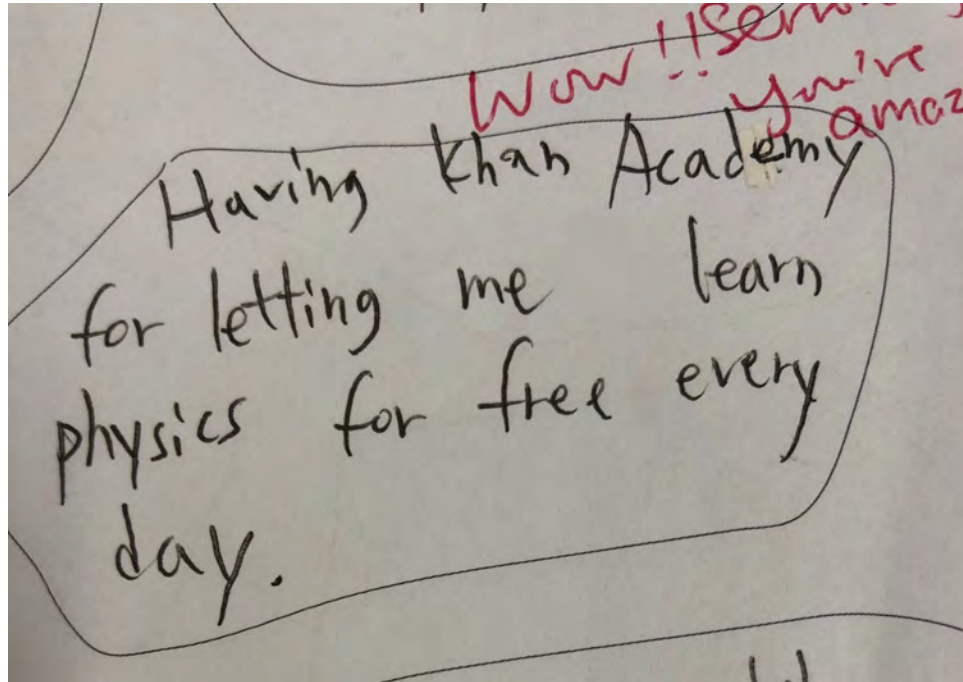 Wow!!
you're
Having Khan Academy
for letting me learn
physics for free every
day.